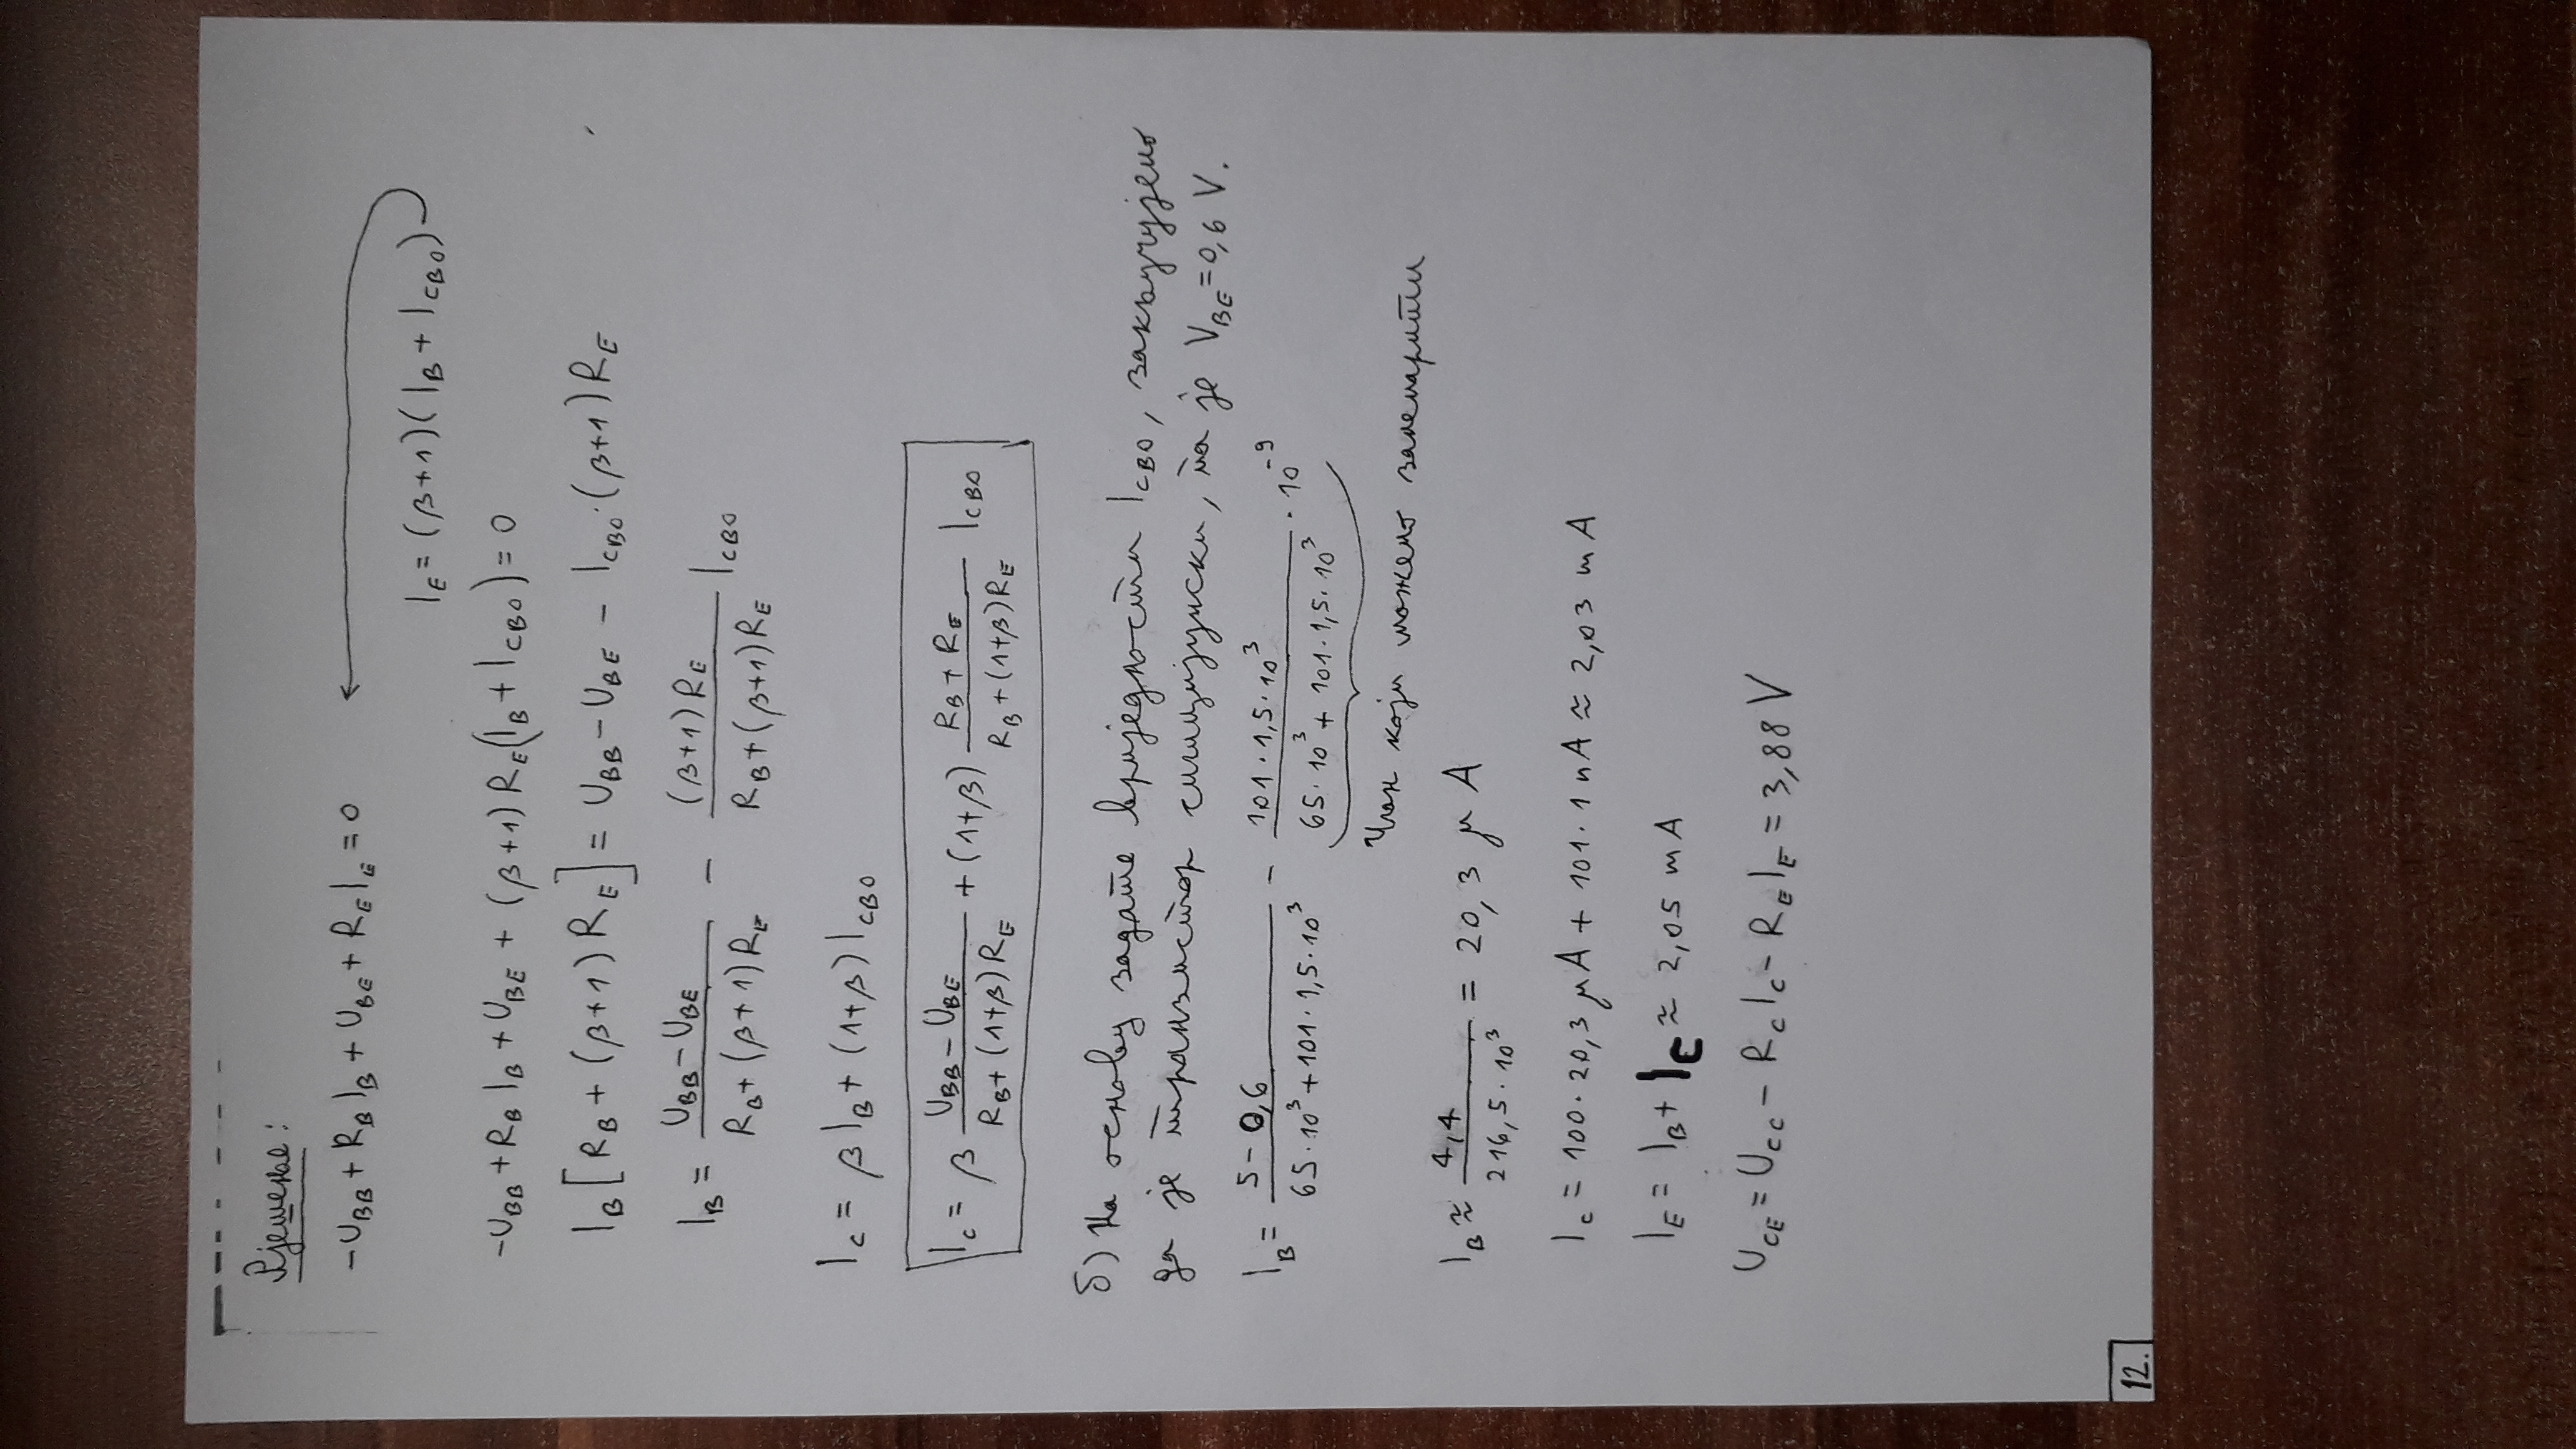 Рјешење:
-U_BB + R_B I_B + U_BE + R_E I_E = 0
I_E = (β+1)(I_B + I_CBO)
-U_BB + R_B I_B + U_BE + (β+1) R_E (I_B + I_CBO) = 0
I_B [R_B + (β+1) R_E] = U_BB - U_BE - I_CBO · (β+1) R_E
I_B = (U_BB - U_BE) / (R_B + (β+1) R_E) - ((β+1) R_E) / (R_B + (β+1) R_E) I_CBO
I_C = β I_B + (1+β) I_CBO
I_C = β (U_BB - U_BE) / (R_B + (1+β) R_E) + (1+β) (R_B + R_E) / (R_B + (1+β) R_E) I_CBO
б) На основу задате вриједности I_CBO, закључујемо
да је транзистор силицијумски, па је V_BE = 0,6 V.
I_B = (5 - 0,6) / (65·10³ + 101·1,5·10³) - (101·1,5·10³) / (65·10³ + 101·1,5·10³) · 10⁻⁹
Члан који можемо занемарити
I_B ≈ 4,4 / (216,5·10³) = 20,3 μA
I_C = 100·20,3 μA + 101·1 nA ≈ 2,03 mA
I_E = I_B + I_C ≈ 2,05 mA
U_CE = U_CC - R_C I_C - R_E I_E = 3,88 V
12.